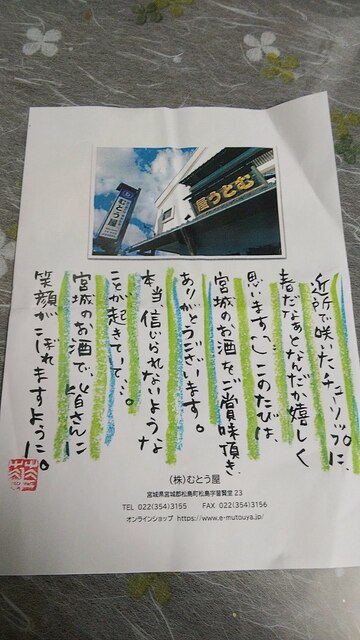 むとう屋
むとう屋
近所で咲いたチューリップに、
春だなぁとなんだか嬉しく
思います(^^)このたびは、
宮城のお酒をご賞味頂き
ありがとうございます。
本当、信じられないような
ことが起きていて…。
宮城のお酒で、皆さんに
笑顔がこぼれますように!。
(株)むとう屋
宮城県宮城郡松島町松島字普賢堂 23
TEL 022(354)3155 FAX 022(354)3156
オンラインショップ https://www.e-mutouya.jp/